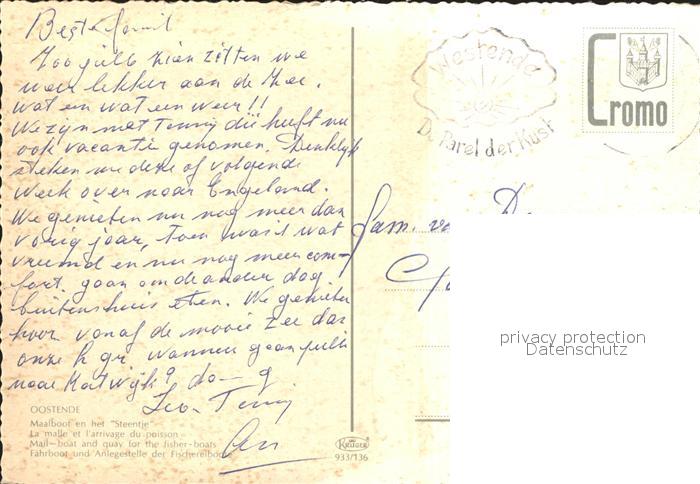 Beste famil
Zoo jullie zien zitten we
weer lekker aan de Zee.
wat en wat een weer!!
We zijn met Tenny die heeft nu
ook vacantie genomen. Denklijk
steken we deze of volgende
week over naar Engeland.
We genieten nu nog meer dan
vorig jaar, toen was 't wat
vreemd en nu nog meer com-
fort. gaan om de ander dag
buitenshuis eten. We genieten
hoor vanaf de mooie Zee das
onze h gr wanneer gaan jullie
naar Katwijk?
Leo Tenny
An
OOSTENDE
Maalboot en het "Steentje"
La malle et l'arrivage du poisson
Mail-boat and quay for the fisher-boats
Fährboot und Anlegestelle der Fischereiboote
KRÜGER
933/136
Westende
De Parel der Kust
Cromo
Fam. v
privacy protection
Datenschutz